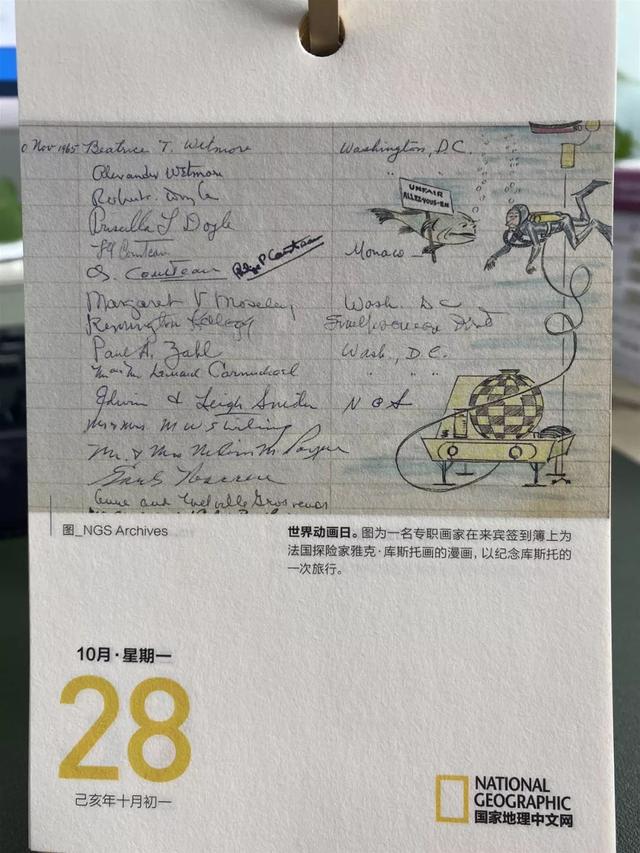 0 Nov 1965 Beatrice T. Wetmore Washington, D.C.
Alexander Wetmore " "
Robert Doyle
UNFAIR
ALLEZ-VOUS-EN
Priscilla L Doyle
Cousteau
S. Cousteau Philippe P Cousteau Monaco
Margaret V Moseley Wash. DC
Remington Kellogg
Paul A. Zahl Wash., D.C.
Leonard Carmichael " " "
Edwin & Leigh Snider N G S
Mr. & Mrs Melvin M Payne
Earl Warren
Anne and Melville Grosvenor
图_NGS Archives
世界动画日。图为一名专职画家在来宾签到簿上为
法国探险家雅克·库斯托画的漫画，以纪念库斯托的
一次旅行。
10月·星期一
28
己亥年十月初一
NATIONAL
GEOGRAPHIC
国家地理中文网